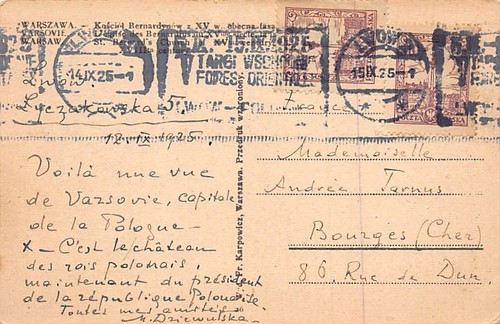 WARSZAWA. Kościół Bernardynów z XV w. obecna fasa
VARSOVIE.
WARSAW
LWÓW
14.IX.25-1
5-15.IX.1925
TARGI WSCHODNIE
FOIRES ORIENTALES
LWÓW
15.IX.25-1
POCZTA POLSKA
Lwów
Łyczakowska 5.
12-IX 1925
Voilà une vue
de Varsovie, capitale
de la Pologne -
x - C'est le château
des rois polonais,
maintenant du président
de la république Polonaise
Toutes mes amitiés
M. Dziewulska
Wr. Karpowicz, Warszawa. Przedruk wzbroniony.
France
Mademoiselle
Andrée Tarnus
Bourges (Cher)
86, Rue de Dun,